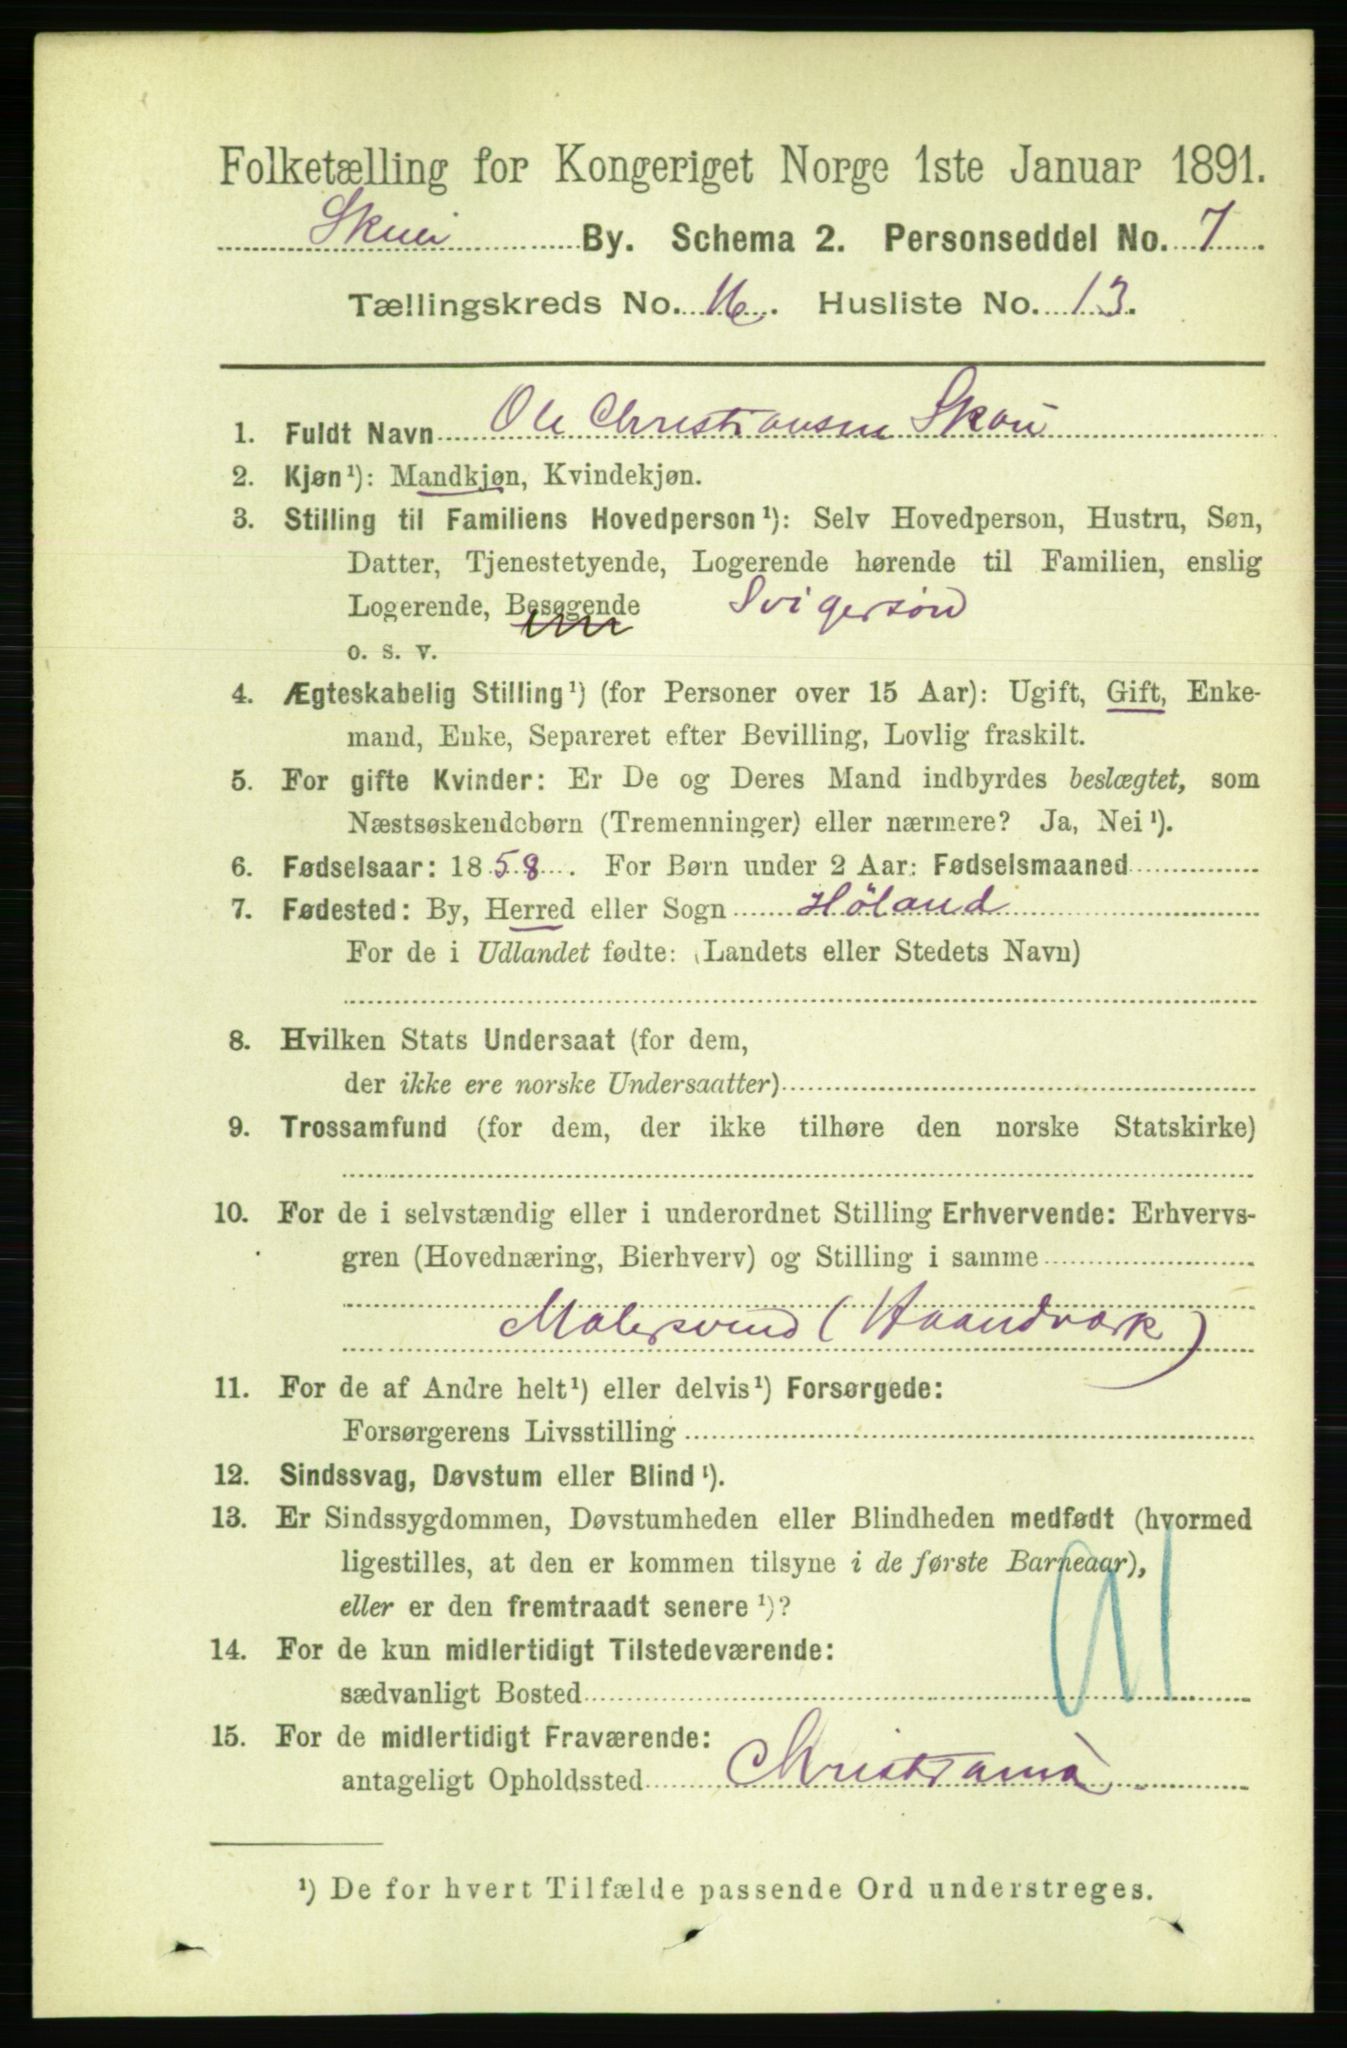 Folketælling for Kongeriget Norge 1ste Januar 1891.
Skien By. Schema 2. Personseddel No. 7.
Tællingskreds No. 16. Husliste No. 13.
1. Fuldt Navn Ole Christiansen Skau
2. Kjøn¹): Mandkjøn, Kvindekjøn.
3. Stilling til Familiens Hovedperson¹): Selv Hovedperson, Hustru, Søn,
Datter, Tjenestetyende, Logerende hørende til Familien, enslig
Logerende, Besøgende Svigersøn
o. s. v.
4. Ægteskabelig Stilling¹) (for Personer over 15 Aar): Ugift, Gift, Enke-
mand, Enke, Separeret efter Bevilling, Lovlig fraskilt.
5. For gifte Kvinder: Er De og Deres Mand indbyrdes beslægtet, som
Næstsøskendebørn (Tremenninger) eller nærmere? Ja, Nei¹).
6. Fødselsaar: 1858. For Børn under 2 Aar: Fødselsmaaned
7. Fødested: By, Herred eller Sogn Høland
For de i Udlandet fødte: (Landets eller Stedets Navn)
8. Hvilken Stats Undersaat (for dem,
der ikke ere norske Undersaatter)
9. Trossamfund (for dem, der ikke tilhøre den norske Statskirke)
10. For de i selvstændig eller i underordnet Stilling Erhvervende: Erhvervs-
gren (Hovednæring, Bierhverv) og Stilling i samme
Malersvend (Haandværk)
11. For de af Andre helt¹) eller delvis¹) Forsørgede:
Forsørgerens Livsstilling
12. Sindssvag, Døvstum eller Blind¹).
13. Er Sindssygdommen, Døvstumheden eller Blindheden medfødt (hvormed
ligestilles, at den er kommen tilsyne i de første Barneaar),
eller er den fremtraadt senere¹)?
14. For de kun midlertidigt Tilstedeværende:
sædvanligt Bosted
15. For de midlertidigt Fraværende:
antageligt Opholdssted Christiania
¹) De for hvert Tilfælde passende Ord understreges.